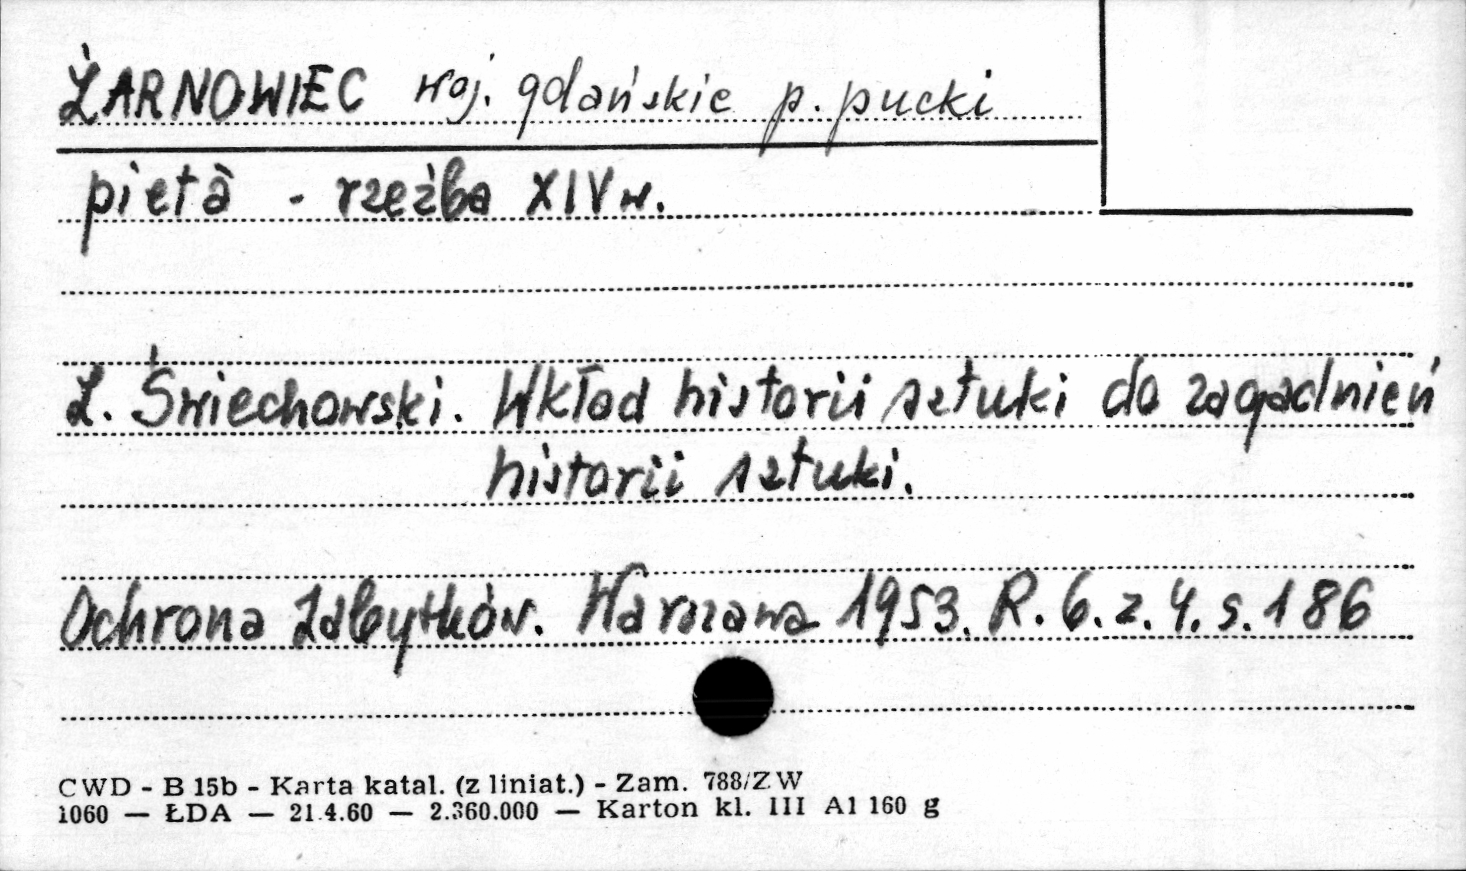 ŻARNOWIEC woj. gdańskie p. pucki
pietà - rzeźba XIV w.
Z. Świechowski. Wkład historii sztuki do zagadnień
historii sztuki.
Ochrona Zabytków. Warszawa 1953. R. 6. z. 4. s. 186
CWD - B 15b - Karta katal. (z liniat.) - Zam. 788/ZW
1060 — ŁDA — 21.4.60 — 2.360.000 — Karton kl. III A1 160 g